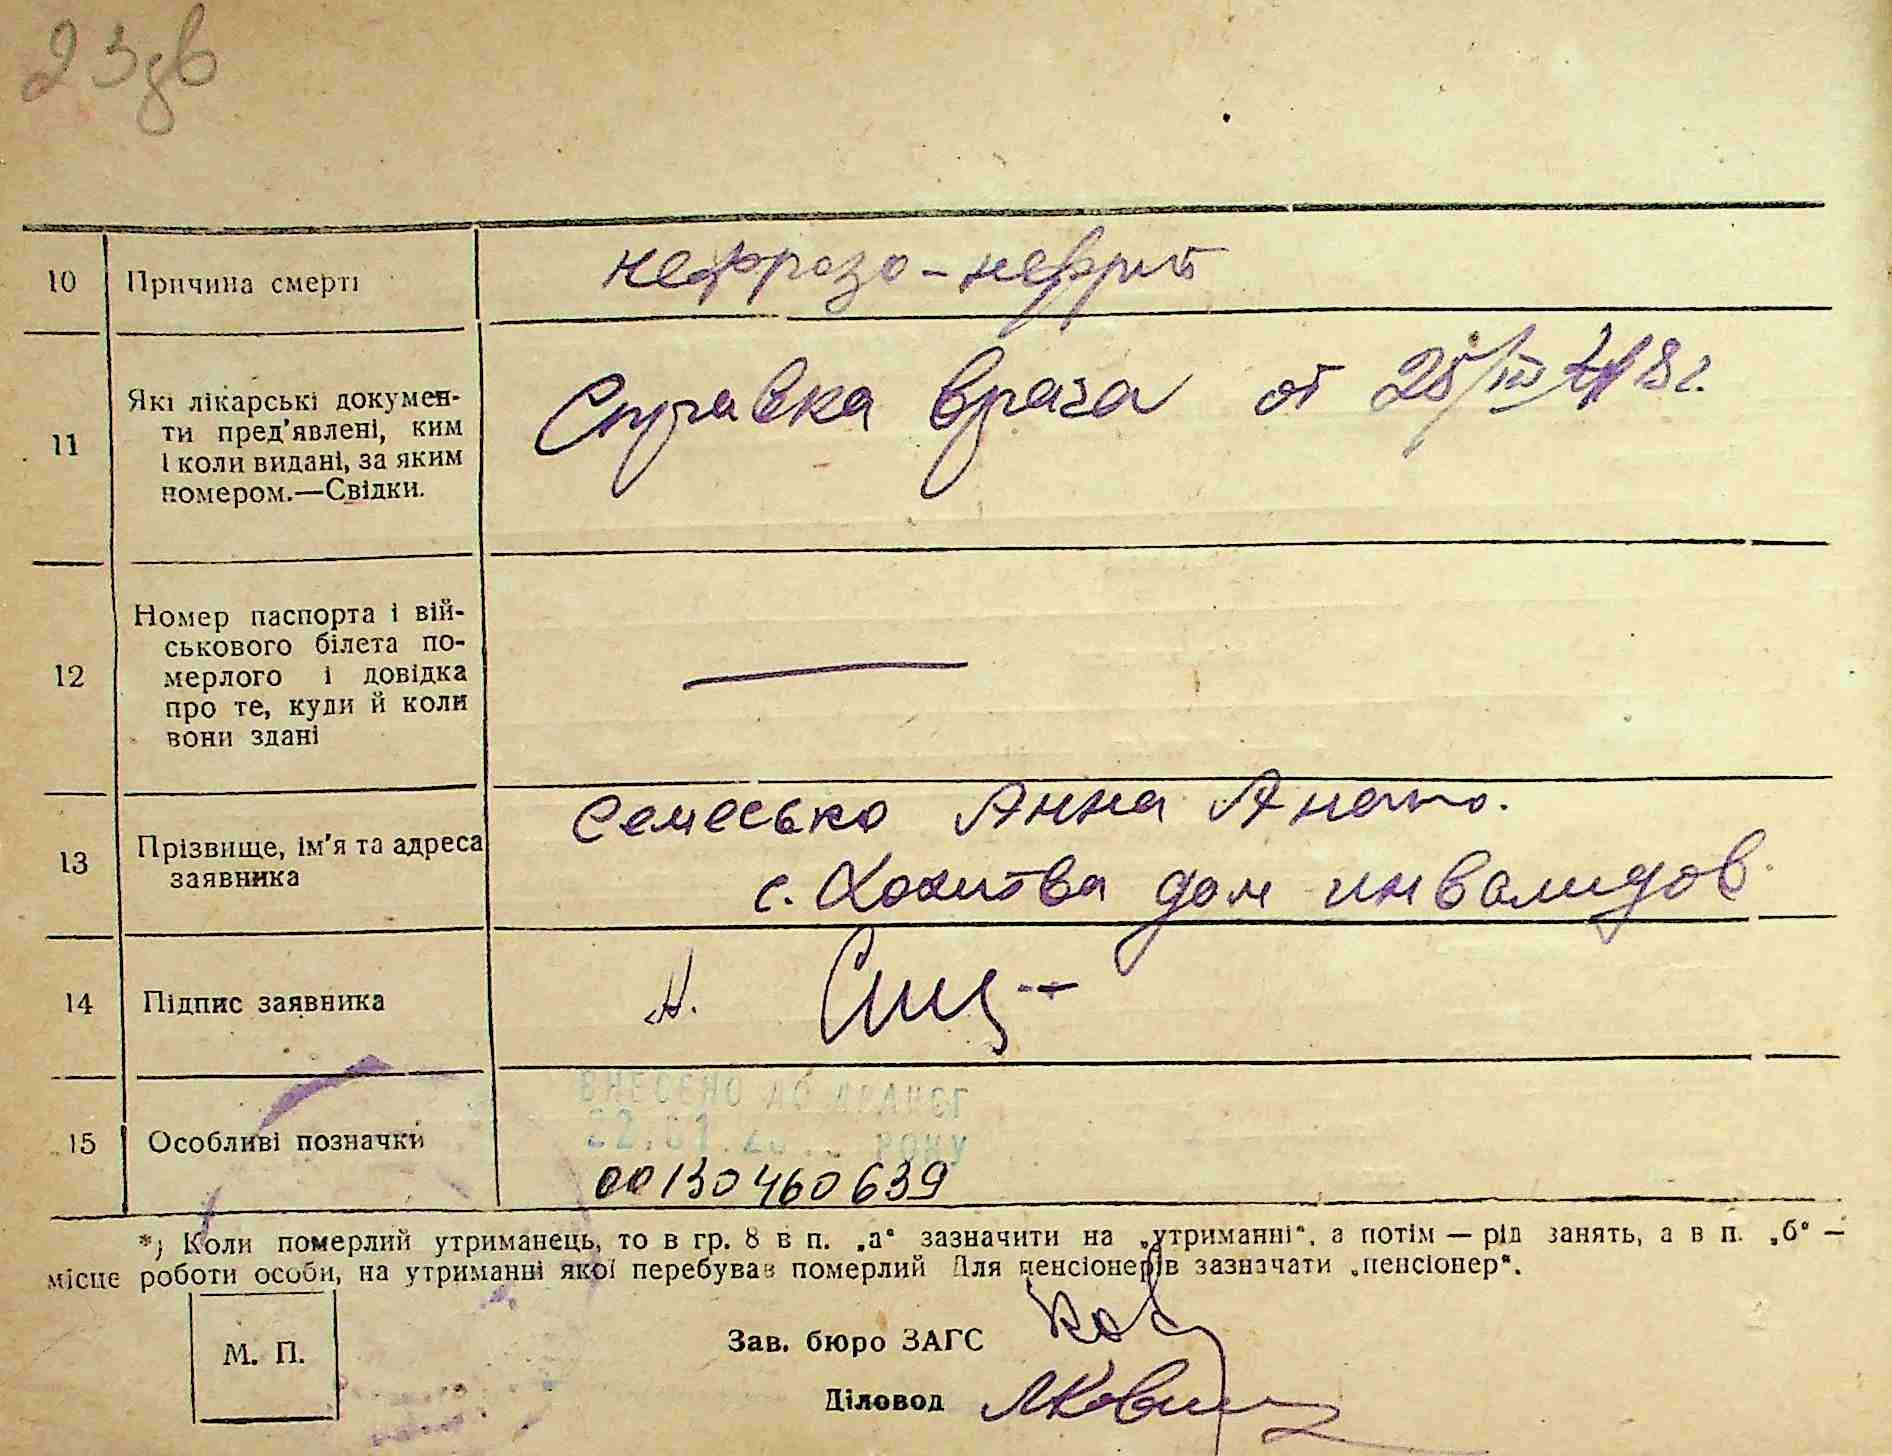 23зв
10 Причина смерті нефрозо-нефрит
11 Які лікарські докумен-
ти пред'явлені, ким
і коли видані, за яким
номером.—Свідки.
Справка врача от 25/III 48 г.
12 Номер паспорта і вій-
ськового білета по-
мерлого і довідка
про те, куди й коли
вони здані
13 Прізвище, ім'я та адреса
заявника
Семесько Анна
с. Хохитва дом инвалидов
14 Підпис заявника
15 Особливі позначки
ВНЕСЕНО ДО ДРАЦСГ
22.01. РОКУ
00130460639
*) Коли померлий утриманець, то в гр. 8 в п. „а“ зазначити на „утриманні“, а потім — рід занять, а в п. „б“ —
місце роботи особи, на утриманні якої перебував померлий Для пенсіонерів зазначати „пенсіонер“.
М. П.
Зав. бюро ЗАГС
Діловод